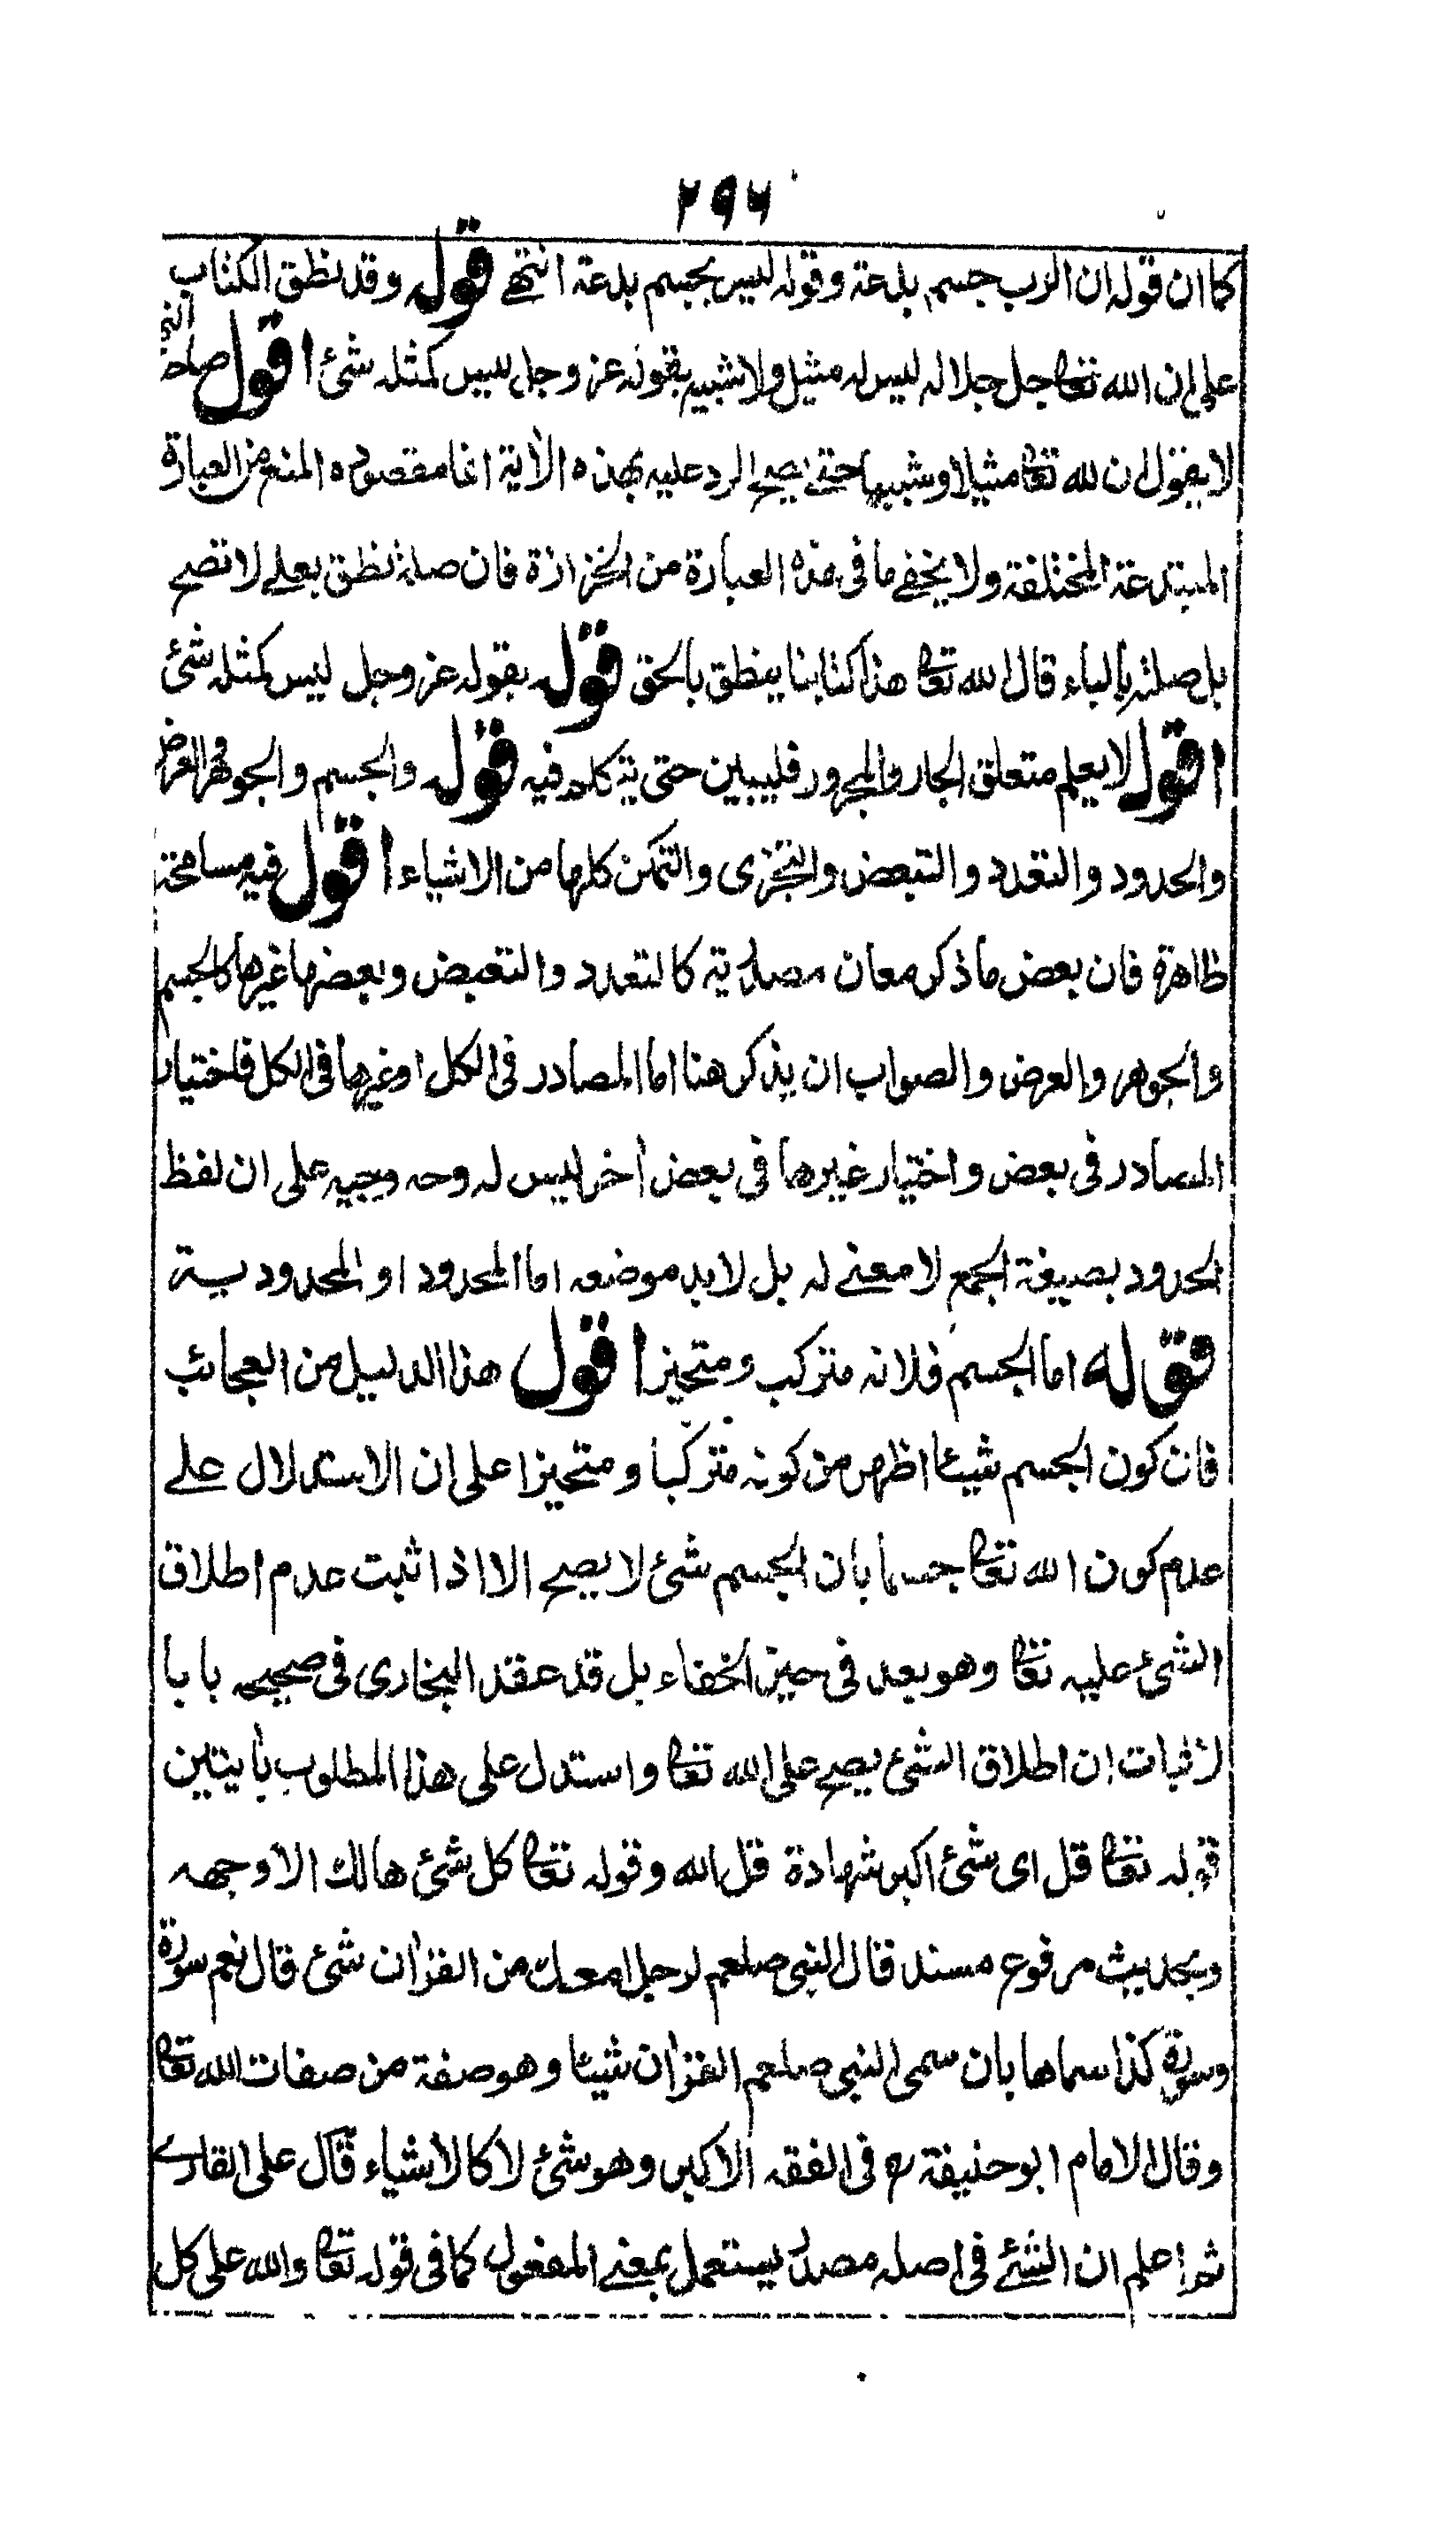 ٢٩٦
كما ان قوله ان الرب جسم بدعة وقوله ليس بجسم بدعة انتهے قوله وقد نطق الكتاب
على ان الله تعالى جل جلاله ليس له مثيل ولا شبيه بقوله عز وجل ليس كمثله شئ اقول صاحب النهج
لا يقول ان لله تعالى مثيلا وشبيها حتے يصح الرد عليه بهذه الاٰية انما مقصوده المنع من العبارة
المبتدعة المختلفة ولا يخفے ما فى هذه العبارة من الحزازة فان صلة نطق بعلے لا تصح
بل صلته بالباء قال الله تعالى هذا كتابنا ينطق بالحق قوله بقوله عز وجل ليس كمثله شئ
اقول لا يعلم متعلق الجار والمجرور فليبين حتى يتكلم فيه قوله والجسم والجوهر والعرض
والحدود والتعدد والتبعض والتجزى والتمكن كلها من الاشياء اقول فيه مسامحة
ظاهرة فان بعض ما ذكر معان مصدرية كالتعدد والتبعض وبعضها غيرها كالجسم
والجوهر والعرض والصواب ان يذكر هنا اما المصادر فى الكل او غيرها فى الكل فاختيار
المصادر فى بعض واختيار غيرها في بعض اٰخر ليس له وجه وجيه على ان لفظ
الحدود بصيغة الجمع لا معنے له بل لا بد موضعه اما المحدود او المحدودية
قوله اما الجسم فلانه متركب ومتحيز اقول هذا الدليل من العجائب
فان كون الجسم شيئا اظهر من كونه متركبا ومتحيزا على ان الاستدلال علے
عدم كون الله تعالى جسما بان الجسم شئ لا يصح الا اذا ثبت عدم اطلاق
الشئ عليه تعالى وهو بعد فى حيز الخفاء بل قد عقد البخارى فى صحيحه بابا
لاثبات ان اطلاق الشئ يصح على الله تعالى واستدل على هذا المطلوب باٰيتين
قوله تعالى قل اى شئ اكبر شهادة قل الله وقوله تعالى كل شئ هالك الا وجهه
وبحديث مرفوع مسند قال النبى صلعم لرجل امعك من القراٰن شئ قال نعم سورة
وسورة كذا سماها بان سمى النبى صلعم القراٰن شيئا وهو صفة من صفات الله تعالى
وقال الامام ابو حنيفة رح فى الفقه الاكبر وهو شئ لا كالاشياء قال على القارے
ثم اعلم ان الشئے فى اصله مصدر يستعمل بمعنے المفعول كما فى قوله تعالى والله على كل